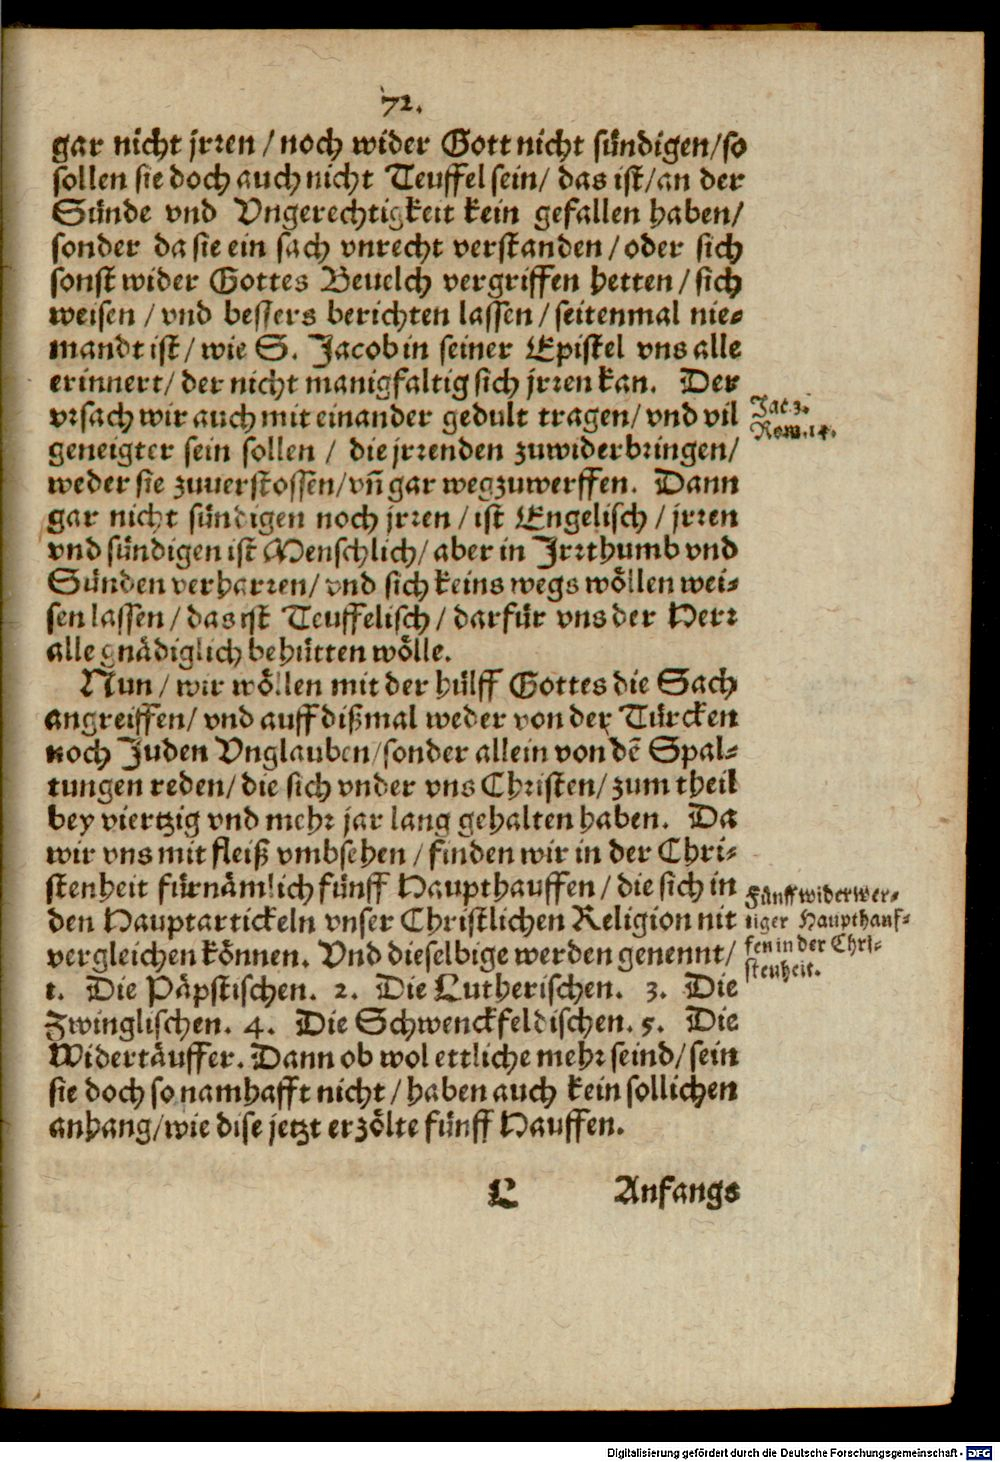 72.
gar nicht jrren / noch wider Gott nicht sündigen / so
sollen sie doch auch nicht Teuffel sein / das ist / an der
Sünde vnd Vngerechtigkeit kein gefallen haben /
sonder da sie ein sach vnrecht verstanden / oder sich
sonst wider Gottes Beuelch vergriffen hetten / sich
weisen / vnd bessers berichten lassen / seitenmal nie-
mandt ist / wie S. Jacob in seiner Epistel vns alle
erinnert / der nicht manigfaltig sich jrren kan. Der
vrsach wir auch mit einander gedult tragen / vnd vil
Jac. 3.
Rom. 14.
geneigter sein sollen / die jrrenden zuwiderbringen /
weder sie zuuerstossen / vñ gar wegzuwerffen. Dann
gar nicht sündigen noch jrren / ist Engelisch / jrren
vnd sündigen ist Menschlich / aber in Irrthumb vnd
Sünden verharren / vnd sich keins wegs wöllen wei-
sen lassen / das ist Teuffelisch / darfür vns der Herr
alle gnädiglich behütten wölle.
Nun / wir wöllen mit der hülff Gottes die Sach
angreiffen / vnd auff dißmal weder von der Türcken
noch Juden Vnglauben / sonder allein von dē Spal-
tungen reden / die sich vnder vns Christen / zum theil
bey viertzig vnd mehr jar lang gehalten haben. Da
wir vns mit fleiß vmbsehen / finden wir in der Chri-
stenheit fürnämlich fünff Haupthauffen / die sich in
den Hauptartickeln vnser Christlichen Religion nit
vergleichen können. Vnd dieselbige werden genennt /
Fünff widerwer-
tiger Haupthauf-
fen in der Chri-
stenheit.
1. Die Päpstischen. 2. Die Lutherischen. 3. Die
Zwinglischen. 4. Die Schwenckfeldischen. 5. Die
Widertäuffer. Dann ob wol ettliche mehr seind / sein
sie doch so namhafft nicht / haben auch kein sollichen
anhang / wie dise jetzt erzölte fünff Hauffen.
L Anfangs
Digitalisierung gefördert durch die Deutsche Forschungsgemeinschaft - DFG